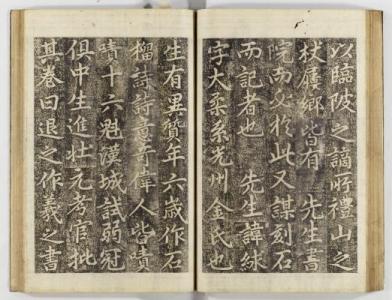 以臨陂之謫所禮山之
杖屨鄕皆有 先生書
院而於此又謀刻石
而記者也 先生諱絿
字大柔系光州金氏也
生有異質年六歲作石
榴詩詩意奇偉人皆嘖
嘖十六魁漢城試弱冠
俱中生進壯元考官批
其卷曰退之作羲之書